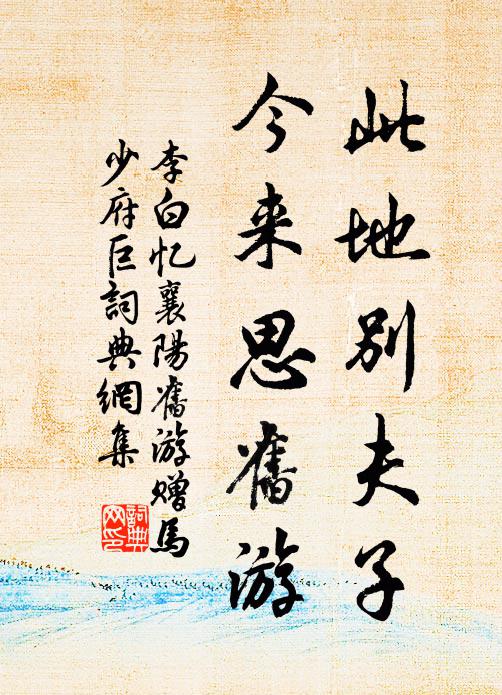 此地别夫子
今来思舊游
李白忆襄陽舊游贈馬
少府巨詞典網集
詞典
网印